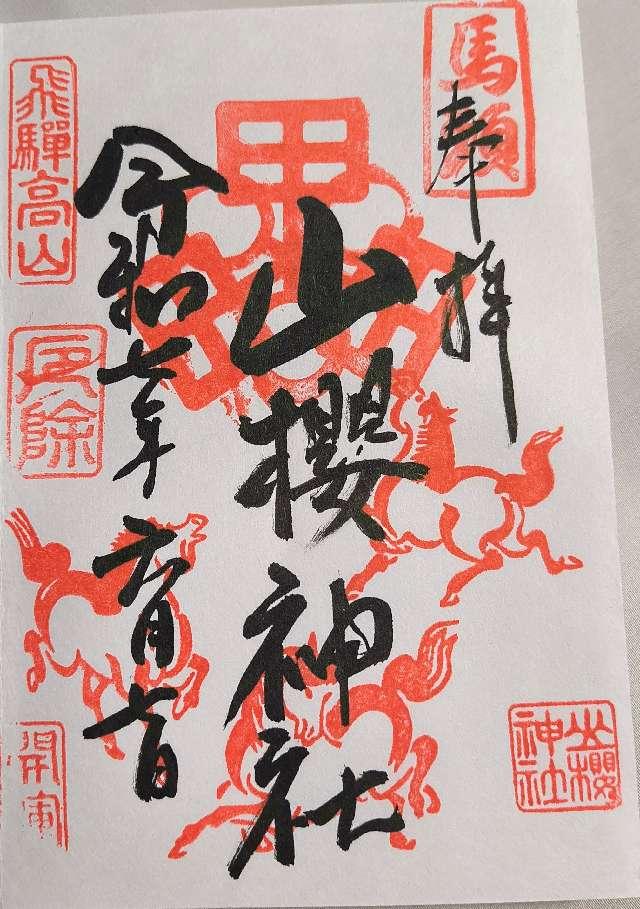 馬頭
奉拝
山櫻神社
山櫻神社
令和七年六月七日
飛驒高山
厄除
開運